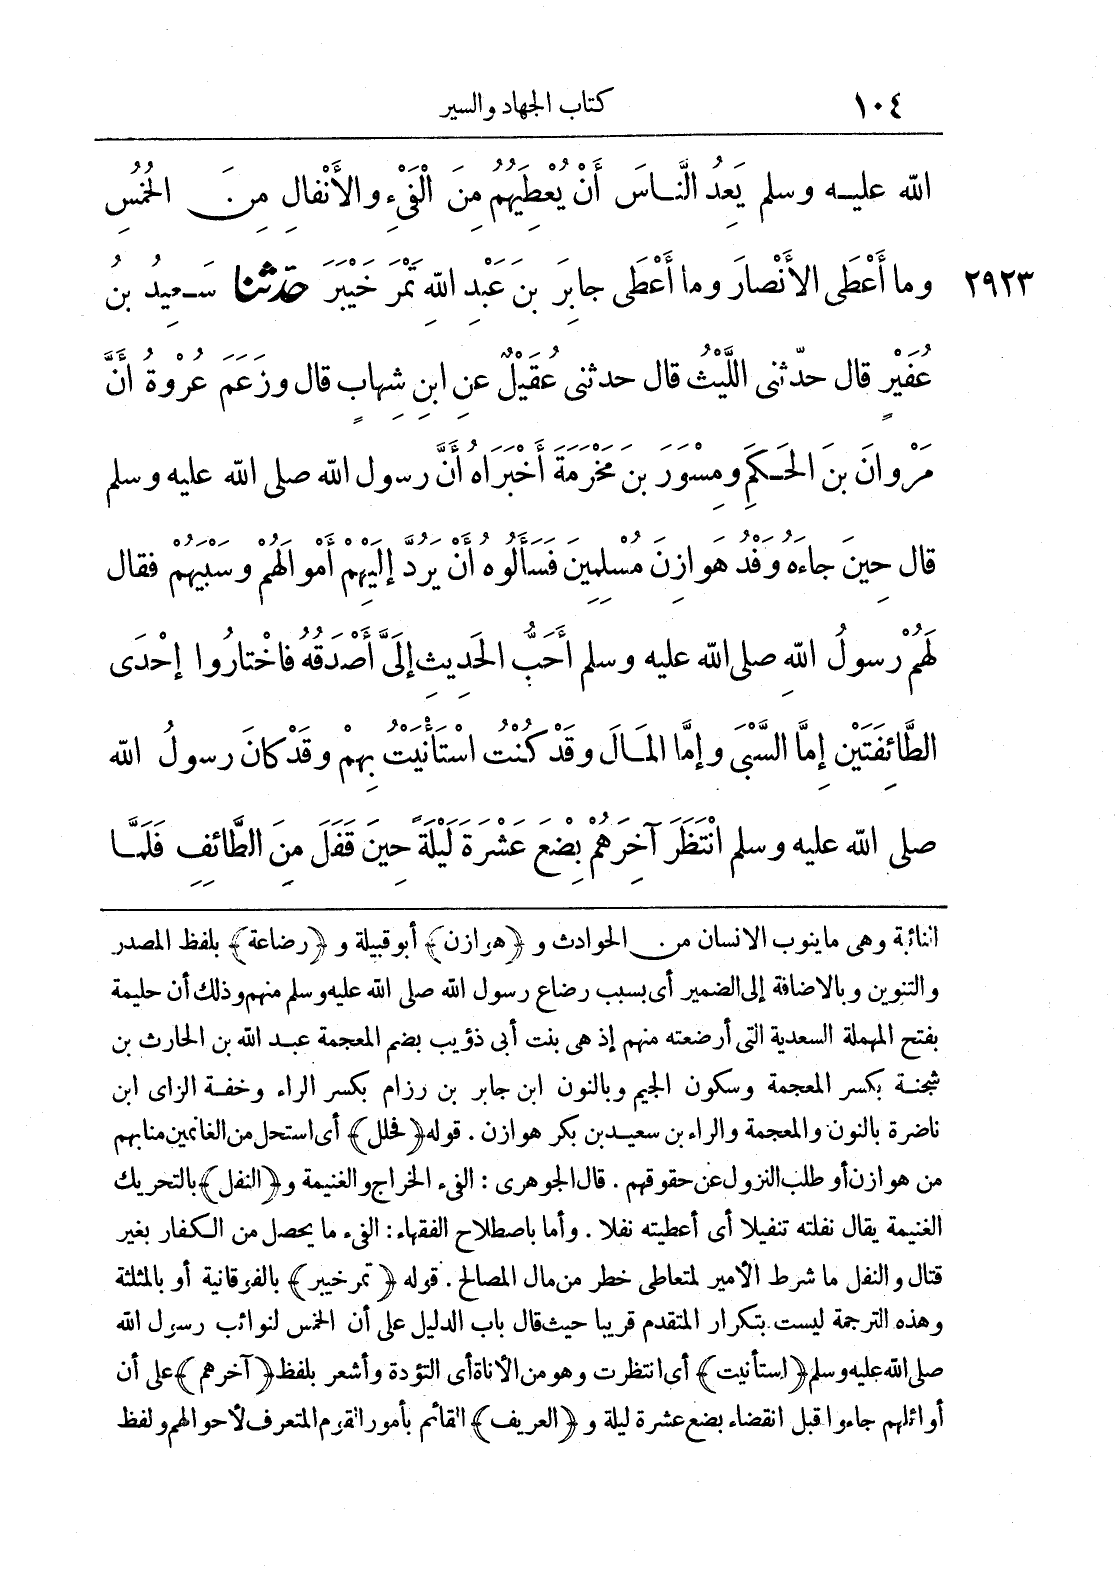 ١٠٤ كتاب الجهاد والسير
الله عليه وسلم يَعِدُ النَّاسَ أَنْ يُعْطِيَهُمْ مِنَ الْفَيْءِ والأَنْفالِ مِنَ الخُمُسِ
وما أَعْطَى الأَنْصارَ وما أَعْطَى جابِرَ بنَ عَبْدِ اللهِ تَمْرَ خَيْبَرَ حَدّثنا سَعِيدُ بنُ ٢٩٢٣
عُفَيْرٍ قال حدّثنى اللَّيْثُ قال حدثنى عُقَيْلٌ عنِ ابنِ شِهابٍ قال وزَعَمَ عُروةُ أنَّ
مَرْوانَ بنَ الحَكَمِ ومِسْوَرَ بنَ مَخْرَمَةَ أَخْبَرَاهُ أَنَّ رسول الله صلى الله عليه وسلم
قال حِينَ جاءَهُ وَفْدُ هَوازِنَ مُسْلِمِينَ فَسَأَلُوهُ أَنْ يَرُدَّ إِلَيْهِمْ أموالَهُمْ وسَبْيَهُمْ فقال
لَهُمْ رسولُ اللهِ صلى الله عليه وسلم أَحَبُّ الحَدِيثِ إلَىَّ أَصْدَقُهُ فاخْتارُوا إحْدَى
الطَّائِفَتَيْنِ إمَّا السَّبْىَ وإمَّا المَالَ وقَدْ كُنْتُ اسْتَأْنَيْتُ بِهِمْ وقَدْ كانَ رسولُ الله
صلى الله عليه وسلم انْتَظَرَ آخِرَهُمْ بِضْعَ عَشْرَةَ لَيْلَةً حِينَ قَفَلَ مِنَ الطَّائِفِ فَلَمَّا
النائبة وهى ماينوب الانسان من الحوادث و ﴿هوازن﴾ أبو قبيلة و ﴿رضاعة﴾ بلفظ المصدر
والتنوين وبالاضافة إلى الضمير أى بسبب رضاع رسول الله صلى الله عليه وسلم منهم وذلك أن حليمة
بفتح المهملة السعدية التى أرضعته منهم إذ هى بنت أبى ذؤيب بضم المعجمة عبد الله بن الحارث بن
شجنة بكسر المعجمة وسكون الجيم وبالنون ابن جابر بن رزام بكسر الراء وخفة الزاى ابن
ناضرة بالنون والمعجمة والراء بن سعيد بن بكر هوازن . قوله ﴿فحلل﴾ أى استحل من الغانمين منابهم
من هوازن أو طلب النزول عن حقوقهم . قال الجوهرى : الفىء الخراج والغنيمة و﴿النفل﴾ بالتحريك
الغنيمة يقال نفلته تنفيلا أى أعطيته نفلا . وأما باصطلاح الفقهاء : الفىء ما يحصل من الكفار بغير
قتال والنفل ما شرط الأمير لمتعاطى خطر من مال المصالح . قوله ﴿تمر خيبر﴾ بالفوقانية أو بالمثلثة
وهذه الترجمة ليست بتكرار المتقدم قريبا حيث قال باب الدليل على أن الخمس لنوائب رسول الله
صلى الله عليه وسلم ﴿استأنيت﴾ أى انتظرت وهو من الأناة أى التؤدة وأشعر بلفظ ﴿آخرهم﴾ على أن
أوائلهم جاءوا قبل انقضاء بضع عشرة ليلة و ﴿العريف﴾ القائم بأمور القوم المتعرف لأحوالهم ولفظ